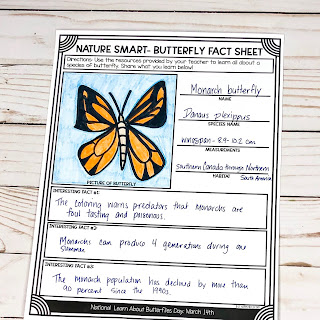 NATURE SMART- BUTTERFLY FACT SHEET
Directions- Use the resources provided by your teacher to learn all about a
species of butterfly. Share what you learn below!
Monarch butterfly
NAME
Danaus plexippus
SPECIES NAME
wingspan- 8.9-10.2 cm
MEASUREMENTS
Southern Canada through Northern
South America
HABITAT
PICTURE OF BUTTERFLY
INTERESTING FACT #1:
The coloring warns predators that Monarchs are
foul tasting and poisonous.
INTERESTING FACT #2:
Monarchs can produce 4 generations during our
summer.
INTERESTING FACT #3:
The monarch population has declined by more than
90 percent since the 1990s.
National Learn About Butterflies Day: March 14th